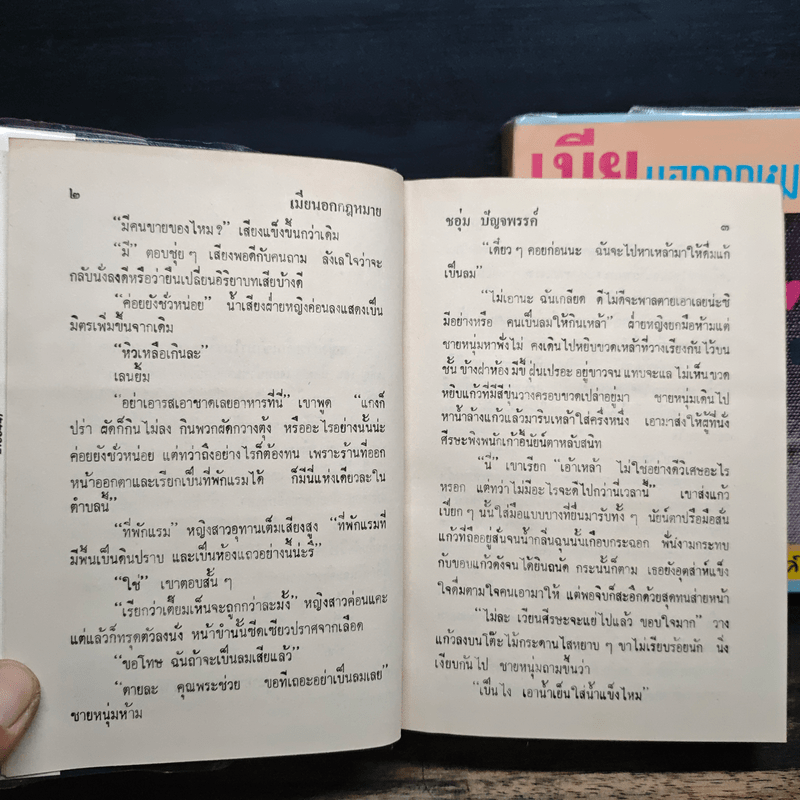 ๒ เมียนอกกฎหมาย
“มีคนขายของไหม?” เสียงแข็งขึ้นกว่าเดิม
“มี” ตอบชุ่ย ๆ เสียงพอดีกับคนถาม ลังเลใจว่าจะ
กลับนั่งลงดีหรือว่ายืนเปลี่ยนอิริยาบทเสียบ้างดี
“ค่อยยังชั่วหน่อย” น้ำเสียงฝ่ายหญิงค่อนลงแสดงเป็น
มิตรเพิ่มขึ้นจากเดิม
“หิวเหลือเกินละ”
เลนยิ้ม
“อย่าเอารสเอาชาดเลยอาหารที่นี่” เขาพูด “แกงก็
ปร่า ผัดก็กินไม่ลง กินพวกผัดกวางตุ้ง หรืออะไรอย่างนั้นน่ะ
ค่อยยังชั่วหน่อย แต่ทว่าถึงอย่างไรก็ต้องทน เพราะร้านที่ออก
หน้าออกตาและเรียกเป็นที่พักแรมได้ ก็มีนี่แห่งเดียวละใน
ตำบลนี้”
“ที่พักแรม” หญิงสาวอุทานเต็มเสียงสูง “ที่พักแรมที่
มีพื้นเป็นดินปราบ และเป็นห้องแถวอย่างนี้น่ะรึ”
“ใช่” เขาตอบสั้น ๆ
“เรียกว่าเตี๊ยมเห็นจะถูกกว่าละมั้ง” หญิงสาวค่อนแคะ
แต่แล้วก็ทรุดตัวลงนั่ง หน้าขำนั้นซีดเซียวปราศจากเลือด
“ขอโทษ ฉันถ้าจะเป็นลมเสียแล้ว”
“ตายละ คุณพระช่วย ขอทีเถอะอย่าเป็นลมเลย”
ชายหนุ่มห้าม
ชอุ่ม ปัญจพรรค์ ๓
“เดี๋ยว ๆ คอยก่อนนะ ฉันจะไปหาเหล้ามาให้ดื่มแก้
เป็นลม”
“ไม่เอานะ ฉันเกลียด ดีไม่ดีจะพาลตายเอาเลยน่ะซิ
มีอย่างหรือ คนเป็นลมให้กินเหล้า” ฝ่ายหญิงยกมือห้ามแต่
ชายหนุ่มหาฟังไม่ คงเดินไปหยิบขวดเหล้าที่วางเรียงกันไว้บน
ชั้น ข้างฝาห้อง มีขี้ ฝุ่นเปรอะ อยู่ขาวจน แทบจะแล ไม่เห็นขวด
หยิบแก้วที่มีสีขุ่นวางครอบขวดเปล่าอยู่มา ชายหนุ่มเดินไป
หาน้ำล้างแก้วแล้วมารินเหล้าใส่ครึ่งหนึ่ง เอามาส่งให้ผู้ที่นั่ง
ศีรษะพิงพนักเก้าอี้นัยน์ตาหลับสนิท
“นี่” เขาเรียก “เอ้าเหล้า ไม่ใช่อย่างดีวิเศษอะไร
หรอก แต่ทว่าไม่มีอะไรจะดีไปกว่านี่เวลานี้” เขาส่งแก้ว
เปียก ๆ นั้นใส่มือแบบบางที่ยื่นมารับทั้ง ๆ นัยน์ตาปรือมือสั่น
แก้วที่ถืออยู่สั่นจนน้ำกลิ่นฉุนนั้นเกือบกระฉอก ฟันงามกระทบ
กับขอบแก้วดังจนได้ยินถนัด กระนั้นก็ตาม เธอยังอุตส่าห์แข็ง
ใจดื่มตามใจคนเอามาให้ แต่พอจิบก็สะอึกด้วยสุดทนส่ายหน้า
“ไม่ละ เวียนศีรษะจะแย่ไปแล้ว ขอบใจมาก” วาง
แก้วลงบนโต๊ะไม้กระดานไสหยาบ ๆ ขาไม่เรียบร้อยนัก นิ่ง
เงียบกันไป ชายหนุ่มถามขึ้นว่า
“เป็นไง เอาน้ำเย็นใส่น้ำแข็งไหม”
เมีย